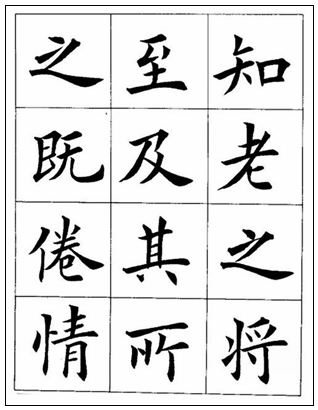 知老之将
至及其所
之既倦情